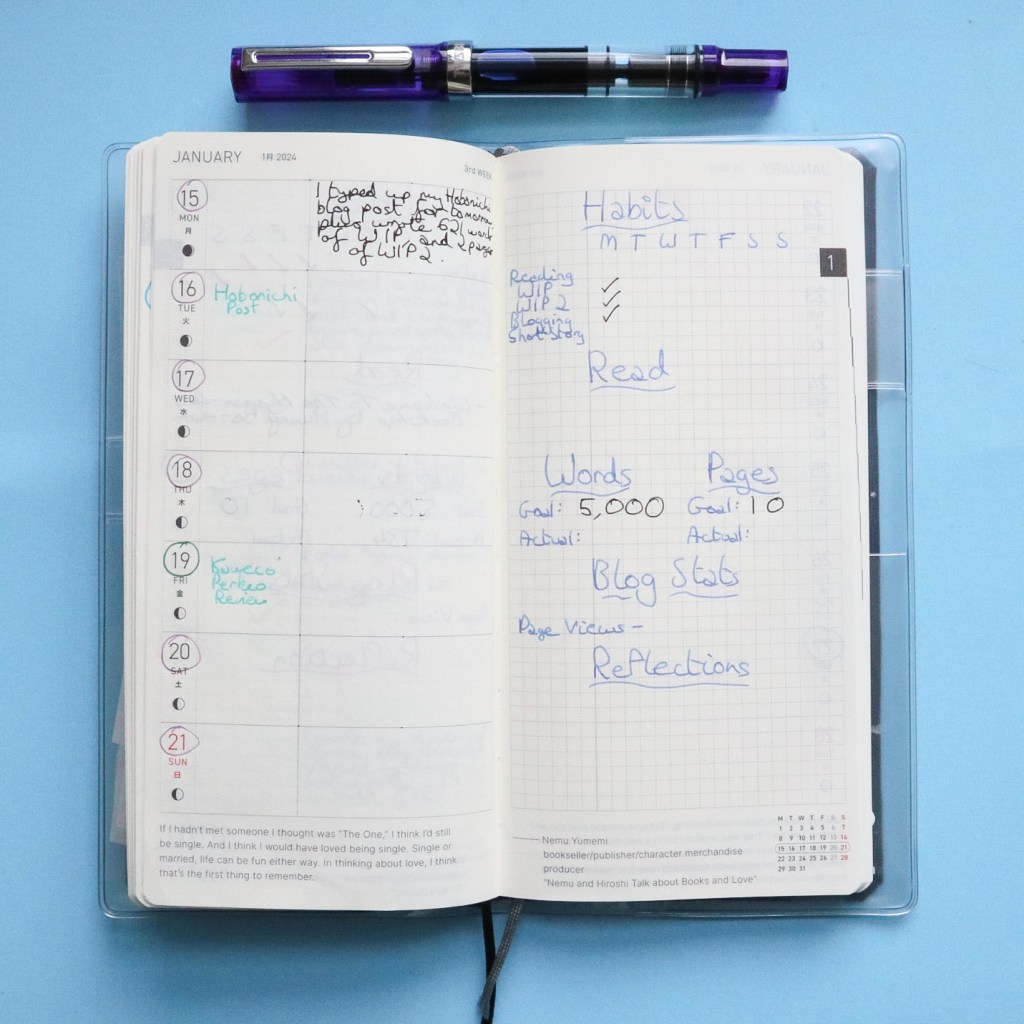 JANUARY 1月 2024
3rd WEEK
15
MON
月
I typed up my Hobonichi
blog post for tomorrow
plus wrote 621 words
of WIP and 2 pages
of WIP 2.
16
TUE
火
Hobonichi
Post
17
WED
水
18
THU
木
19
FRI
金
Kaweco
Perkeo
Review
20
SAT
土
21
SUN
日
If I hadn't met someone I thought was "The One," I think I'd still
be single. And I think I would have loved being single. Single or
married, life can be fun either way. In thinking about love, I think
that's the first thing to remember.
Habits
M T W T F S S
1
Reading
WIP ✓
WIP 2 ✓
Blogging ✓
Short Story
Read
Words
Goal: 5,000
Actual:
Pages
Goal: 10
Actual:
Blog Stats
Page Views -
Reflections
Nemu Yumemi
bookseller/publisher/character merchandise
producer
"Nemu and Hiroshi Talk about Books and Love"
M T W T F S S
1 2 3 4 5 6 7
8 9 10 11 12 13 14
15 16 17 18 19 20 21
22 23 24 25 26 27 28
29 30 31